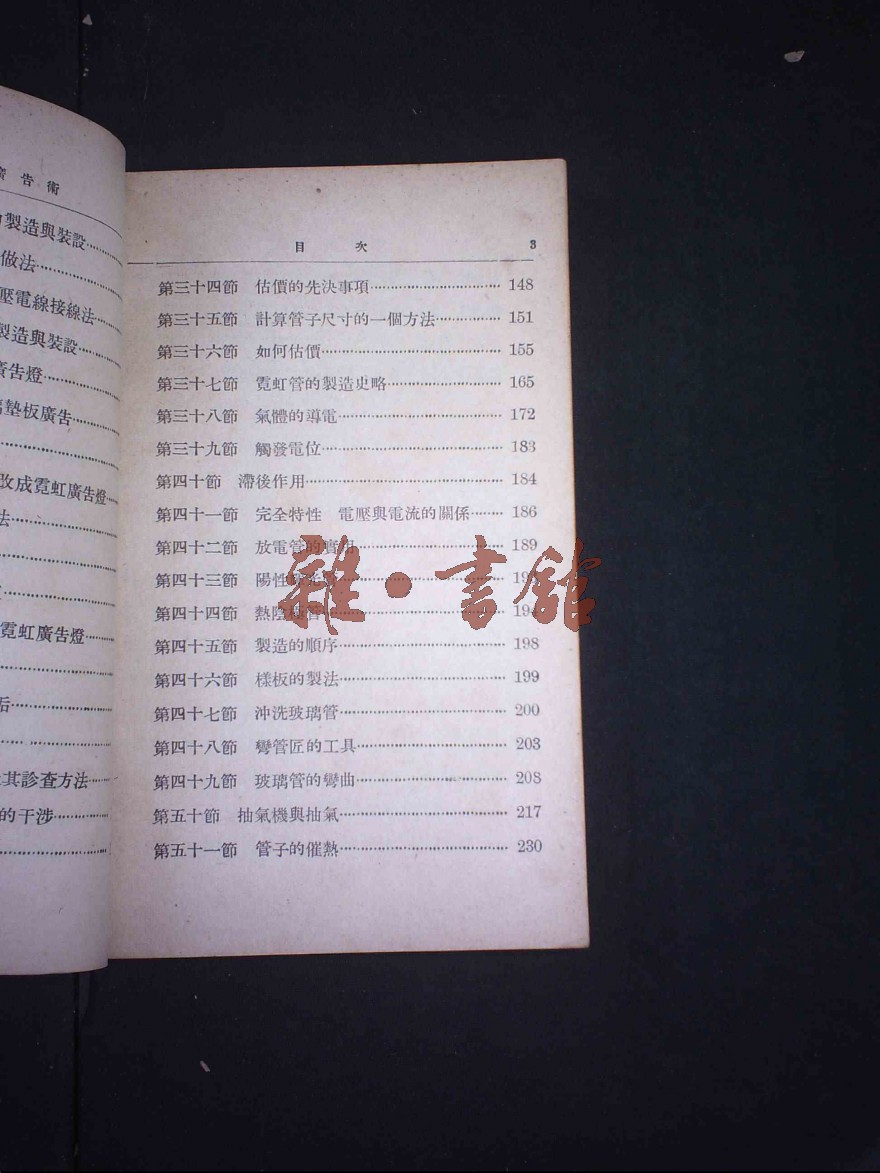 廣告術
製造與裝設
做法
壓電線接線法
製造與裝設
廣告燈
墊板廣告
改成霓虹廣告燈
法
霓虹廣告燈
后
其診查方法
的干涉
目次 3
第三十四節 估價的先決事項 148
第三十五節 計算管子尺寸的一個方法 151
第三十六節 如何估價 155
第三十七節 霓虹管的製造史略 165
第三十八節 氣體的導電 172
第三十九節 觸發電位 183
第四十節 滯後作用 184
第四十一節 完全特性 電壓與電流的關係 186
第四十二節 放電管的實用 189
第四十三節 陽性
第四十四節 熱陰極管 194
第四十五節 製造的順序 198
第四十六節 樣板的製法 199
第四十七節 沖洗玻璃管 200
第四十八節 彎管匠的工具 203
第四十九節 玻璃管的彎曲 208
第五十節 抽氣機與抽氣 217
第五十一節 管子的催熱 230
雜·書館